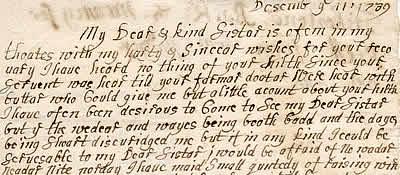 Desember ye 11: 1739
My Dear & kind Sistar is ofern in my
thoates with my harty & Sinccer wishes for your reco
vary I have heard no thing of your hilth Since your
Servent was hear till your farmor doctor Stick hear with
buttar who Could give me but a little acount about your hilth
I have ofern been desirous to Come to See my Dear Sistar
but if the wedear and wayes being booth badd and the dayes
being Short discuridged me but if in any kind I could be
Servesable to my Dear Sistar I would be afraid of no roador
weadar nite nor day I have maid Small quntedy of raising win